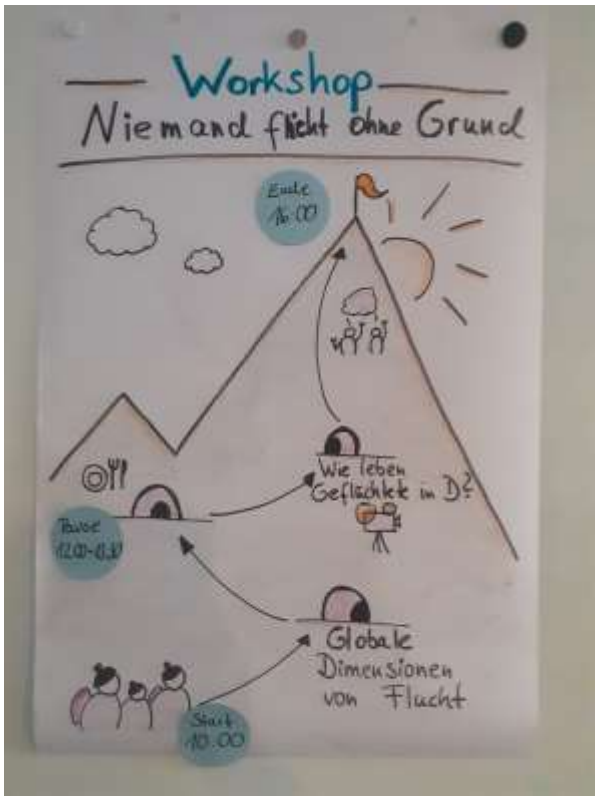 Workshop
Niemand flieht ohne Grund
Ende
16.00
Wie leben
Geflüchtete in D?
Pause
12.00-13.30
Globale
Dimensionen
von Flucht
Start
10.00